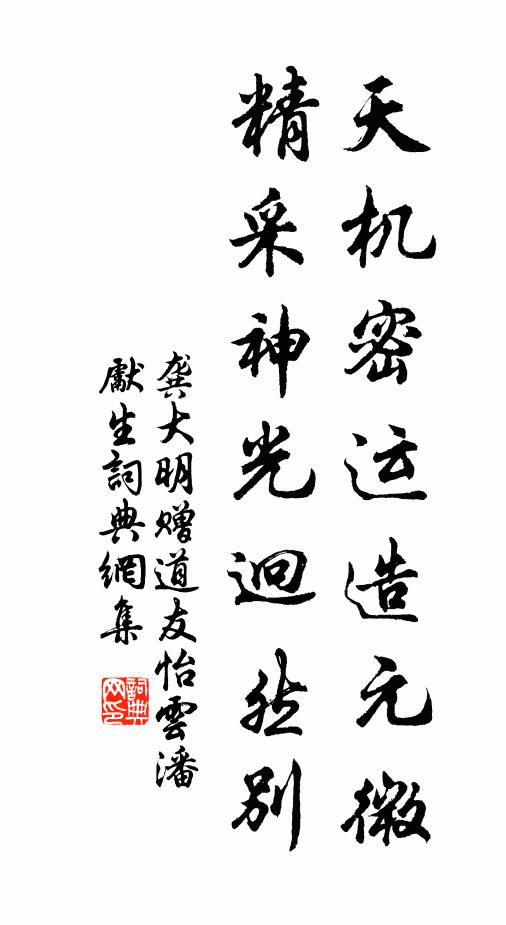 天机密运造元微
精采神光迥然别
龚大明赠道友怡雲潘
獻生詞典網集
詞典
网印